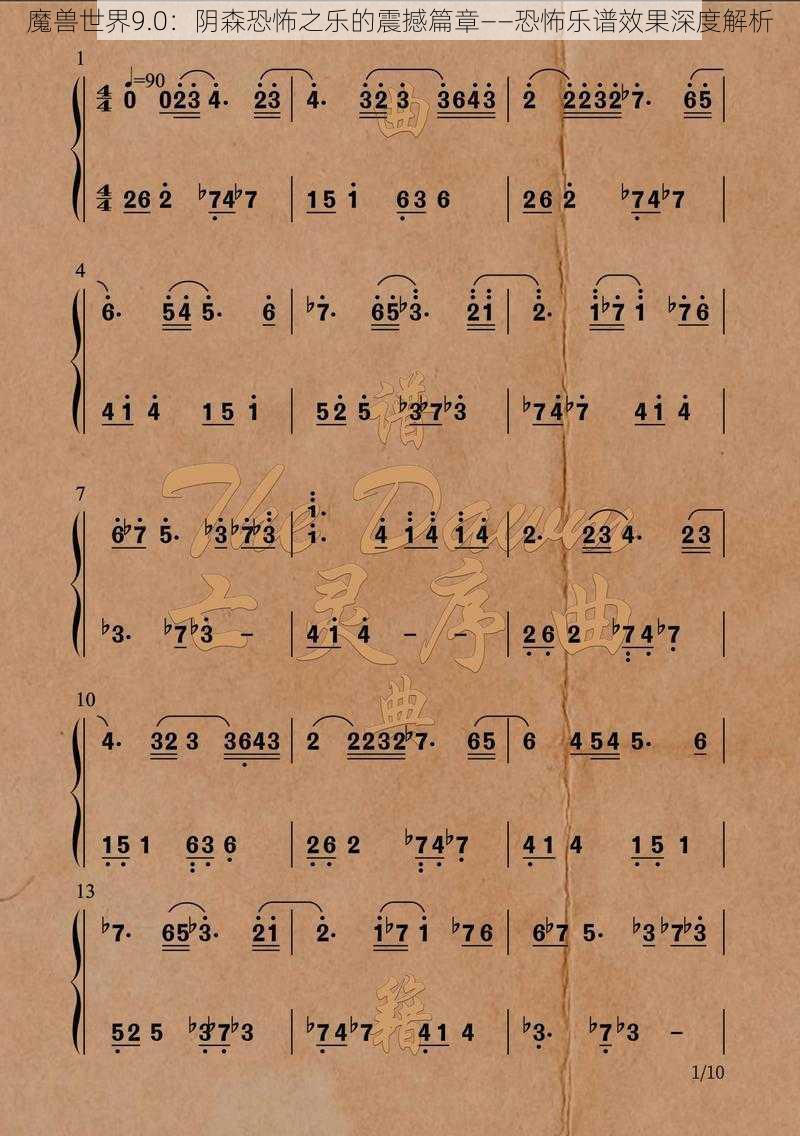 魔兽世界9.0：阴森恐怖之乐的震撼篇章——恐怖乐谱效果深度解析
1
♩=90
4/4 0 023 4. 23 | 4. 32 3 3643 | 2 2232♭7. 65 |
4/4 26 2 ♭74♭7 | 15 1 63 6 | 26 2 ♭74♭7 |
曲
4
6. 54 5. 6 | ♭7. 65♭3. 21 | 2. 1♭7 1 ♭76 |
41 4 15 1 | 52 5 ♭3♭7♭3 | ♭74♭7 41 4 |
谱
The Dawn
7
6♭7 5. ♭3♭7♭3 | 1. 1. 4 14 14 | 2. 23 4. 23 |
♭3. ♭7♭3 – | 41 4 – – | 26 2 ♭74♭7 |
亡灵序曲
10
4. 32 3 3643 | 2 2232♭7. 65 | 6 454 5. 6 |
15 1 63 6 | 26 2 ♭74♭7 | 41 4 15 1 |
典
13
♭7. 65♭3. 21 | 2. 1♭7 1 ♭76 | 6♭7 5. ♭3♭7♭3 |
52 5 ♭3♭7♭3 | ♭74♭7 41 4 | ♭3. ♭7♭3 – |
籍
1/10